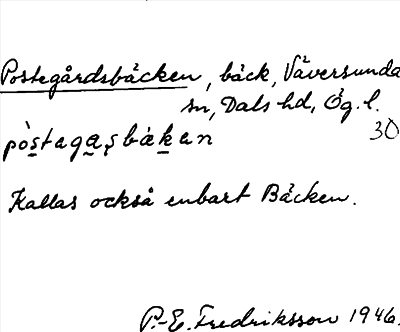 Postegårdsbäcken, bäck, Väversunda
sn, Dals hd, Ög. l.
30
påstagaṣbäkan
Kallas också enbart Bäcken.
P.-E. Fredriksson 1946.